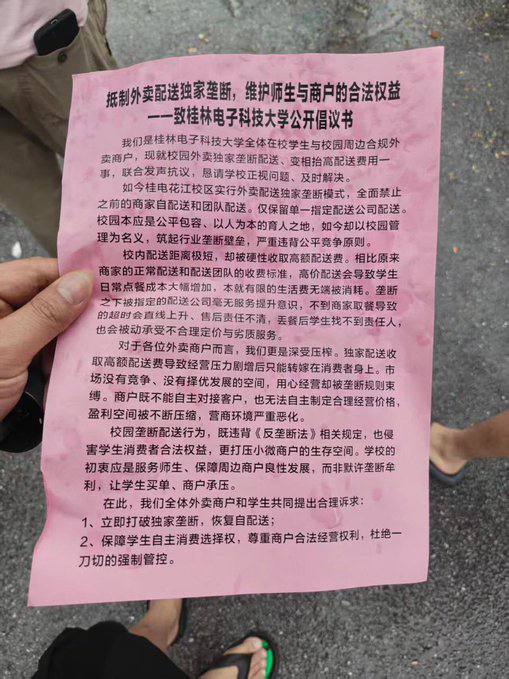 抵制外卖配送独家垄断，维护师生与商户的合法权益
——致桂林电子科技大学公开倡议书
我们是桂林电子科技大学全体在校学生与校园周边合规外
卖商户，现就校园外卖独家垄断配送、变相抬高配送费用一
事，联合发声抗议，恳请学校正视问题、及时解决。
如今桂电花江校区实行外卖配送独家垄断模式，全面禁止
之前的商家自配送和团队配送。仅保留单一指定配送公司配送。
校园本应是公平包容、以人为本的育人之地，如今却以校园管
理为名义，筑起行业垄断壁垒，严重违背公平竞争原则。
校内配送距离极短，却被硬性收取高额配送费。相比原来
商家的正常配送和配送团队的收费标准，高价配送会导致学生
日常点餐成本大幅增加，本就有限的生活费无端被消耗。垄断
之下被指定的配送公司毫无服务提升意识，不到商家取餐导致
的超时会直线上升、售后责任不清，丢餐后学生找不到责任人，
也会被动承受不合理定价与劣质服务。
对于各位外卖商户而言，我们更是深受压榨。独家配送收
取高额配送费导致经营压力剧增后只能转嫁在消费者身上。市
场没有竞争、没有择优发展的空间，用心经营却被垄断规则束
缚。商户既不能自主对接客户，也无法自主制定合理经营价格，
盈利空间被不断压缩，营商环境严重恶化。
校园垄断配送行为，既违背《反垄断法》相关规定，也侵
害学生消费者合法权益，更打压小微商户的生存空间。学校的
初衷应是服务师生、保障周边商户良性发展，而非默许垄断牟
利，让学生买单、商户承压。
在此，我们全体外卖商户和学生共同提出合理诉求：
1、立即打破独家垄断，恢复自配送；
2、保障学生自主消费选择权，尊重商户合法经营权利，杜绝一
刀切的强制管控。